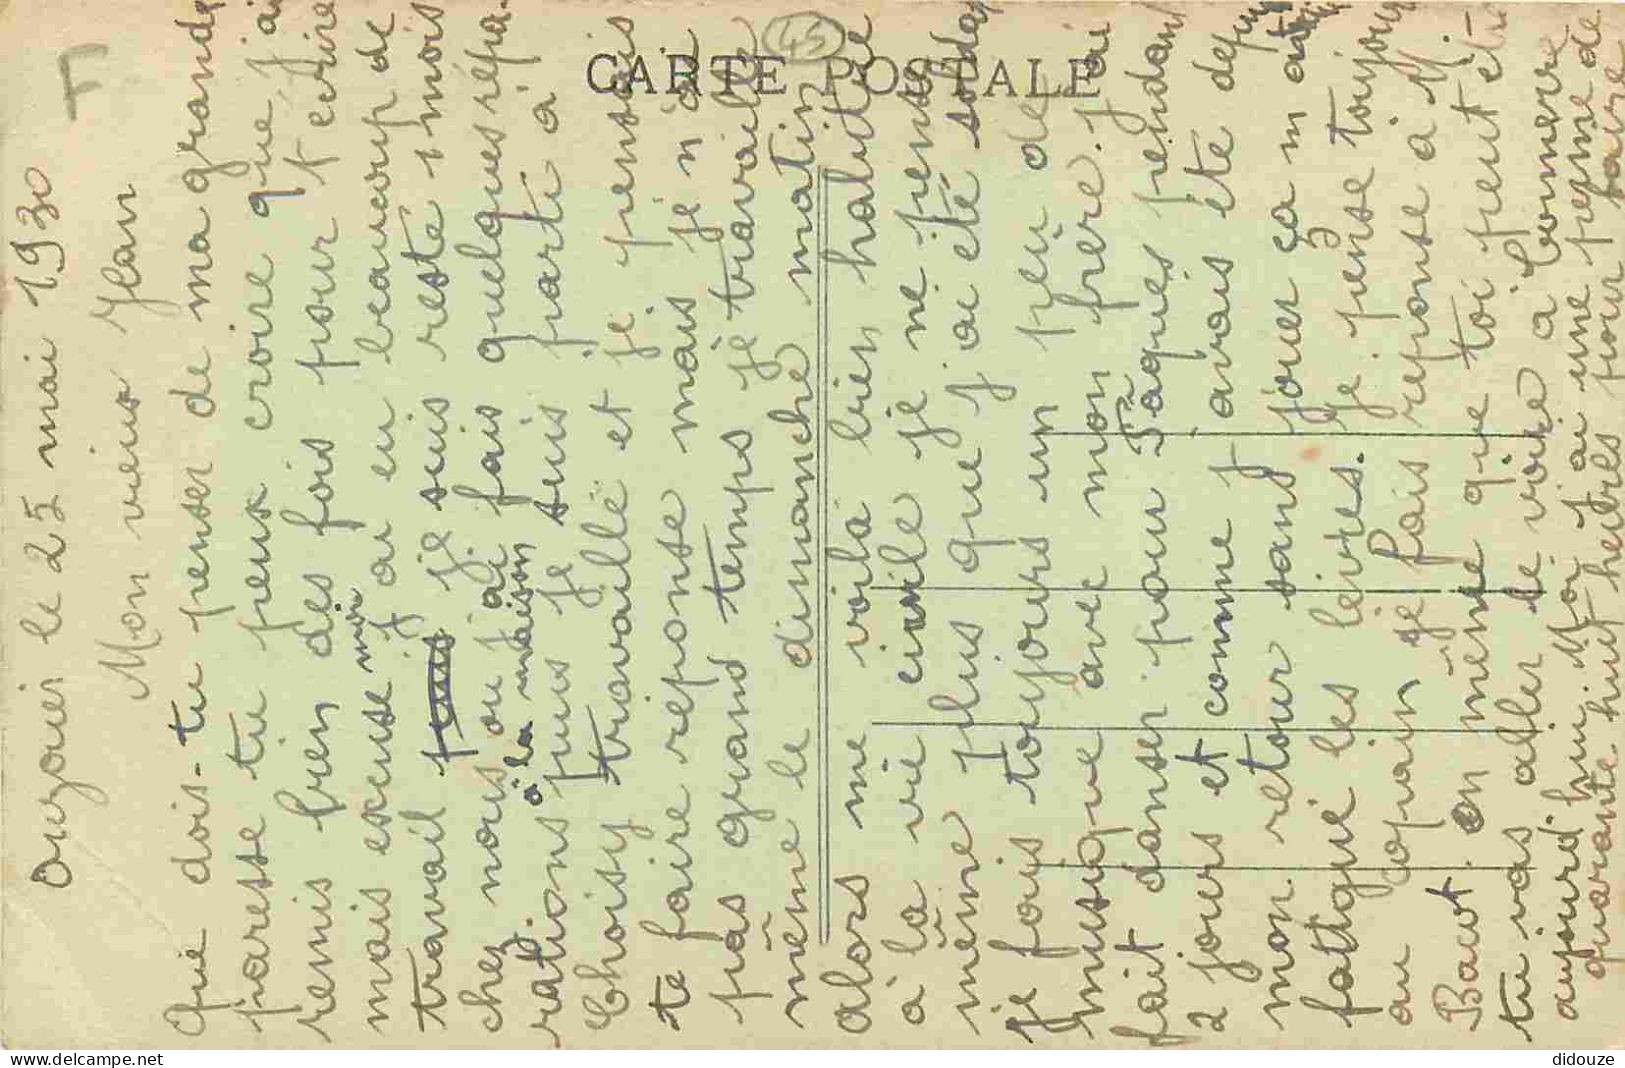 CARTE POSTALE
45
F
Ouzouer le 25 mai 1930
Mon vieux Jean
Que dois-tu penser de ma grande
paresse tu peux croire que j'ai
remis bien des fois pour t'ecrire
mais excuse moi j'ai eu beaucoup de
travail je suis resté 1 mois
chez nous ou j'ai fais quelques répa-
rations à la maison puis je suis parti à
Choisy travaillé et je pensais
te faire reponse mais je n'ai
pas grand temps je travaille
même le dimanche matin
alors me voila bien habitué
à la vie civile je ne pense
même plus que j'ai été soldat
je fais toujours un peu de
musique avec mon frère. j'ai
fait danser pour Pâques pendant
2 jours et comme j'avais été depuis
mon retour sans jouer ça m'a
fatigué les levres. Je pense toujours
au copain je fais reponse à M.
Bawt en même que toi peut etre
tu vas aller le voire a Commerce
aujourd'hui Moi j'ai une peine de
quarante huit heures pour faire
www.delcampe.net
didouze